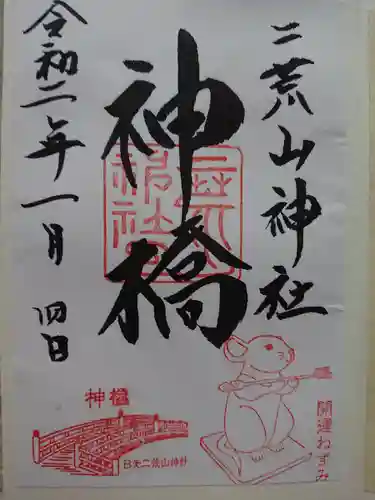 二荒山神社
神橋
令和二年一月四日
神橋
日光二荒山神社
開運ねずみ